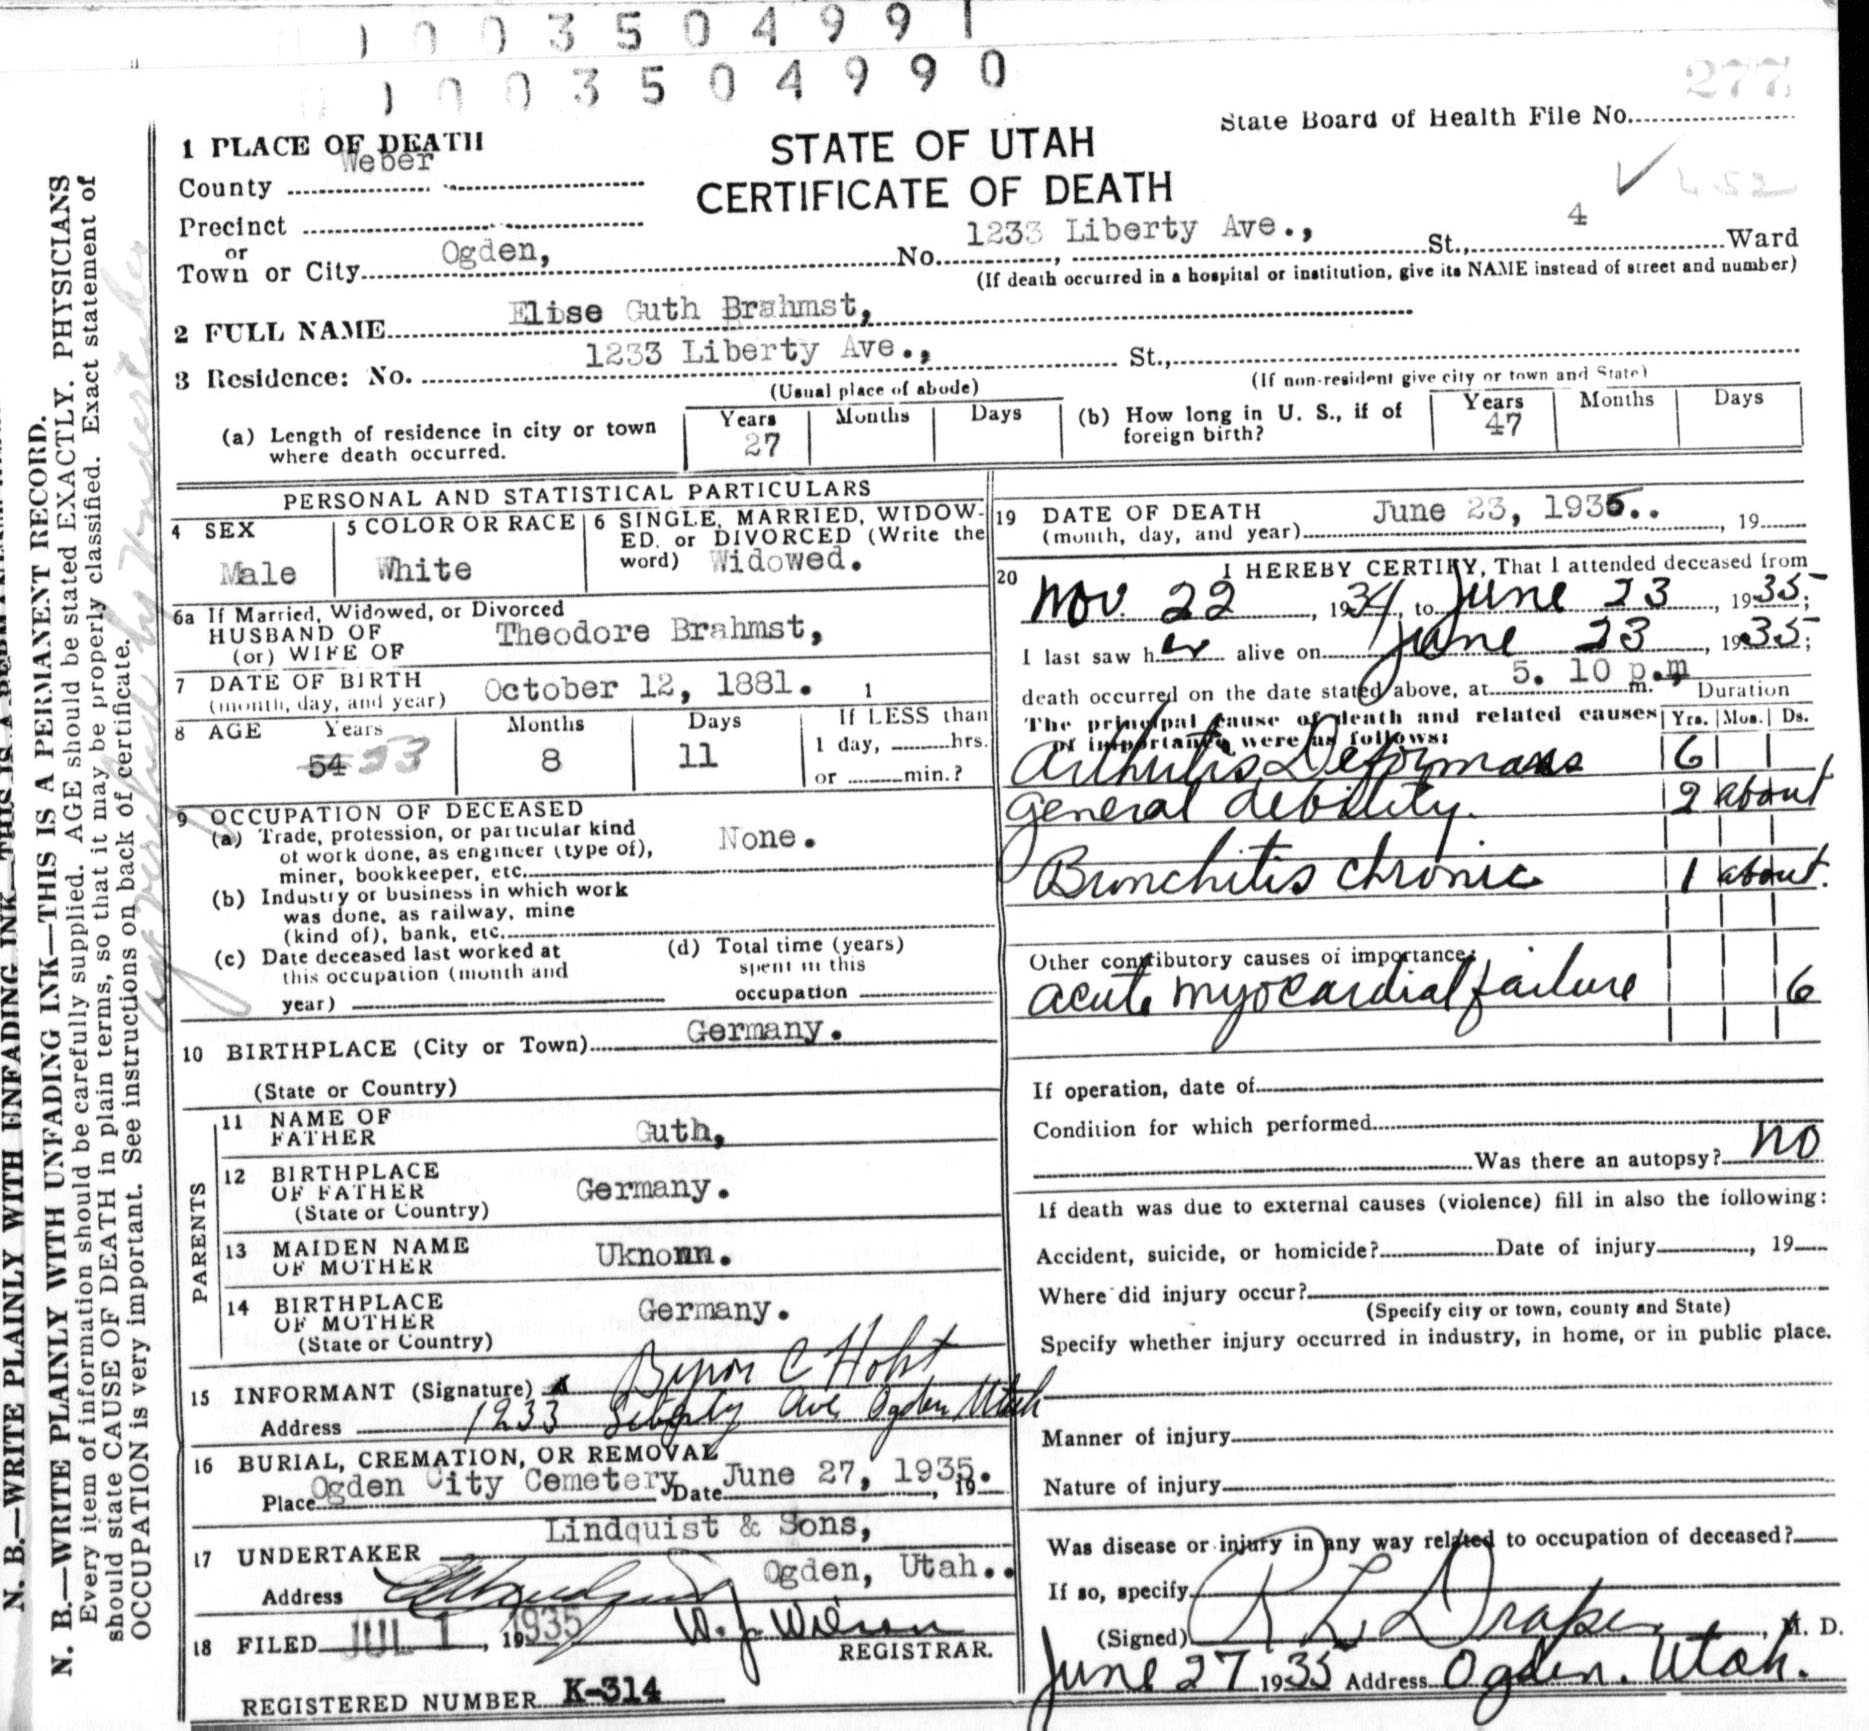 1003504991
1003504990
277
State Board of Health File No.
1 PLACE OF DEATH
STATE OF UTAH
CERTIFICATE OF DEATH
452
County Weber
Precinct
or
Town or City Ogden, No. 1233 Liberty Ave., St., 4 Ward
(If death occurred in a hospital or institution, give its NAME instead of street and number)
2 FULL NAME Elise Guth Brahmst,
3 Residence: No. 1233 Liberty Ave., St.,
(Usual place of abode) (If non-resident give city or town and State)
(a) Length of residence in city or town where death occurred. Years 27 Months Days
(b) How long in U. S., if of foreign birth? Years 47 Months Days
PERSONAL AND STATISTICAL PARTICULARS
4 SEX Male
5 COLOR OR RACE White
6 SINGLE, MARRIED, WIDOW-
ED, or DIVORCED (Write the
word) Widowed.
6a If Married, Widowed, or Divorced
HUSBAND OF
(or) WIFE OF Theodore Brahmst,
7 DATE OF BIRTH
(month, day, and year) October 12, 1881. 1
8 AGE Years Months Days If LESS than
54 53 8 11 1 day, hrs.
or min.?
9 OCCUPATION OF DECEASED
(a) Trade, profession, or particular kind
of work done, as engineer (type of),
miner, bookkeeper, etc. None.
(b) Industry or business in which work
was done, as railway, mine
(kind of), bank, etc.
(c) Date deceased last worked at
this occupation (month and
year)
(d) Total time (years)
spent in this
occupation
10 BIRTHPLACE (City or Town) Germany.
(State or Country)
PARENTS
11 NAME OF
FATHER Guth,
12 BIRTHPLACE
OF FATHER
(State or Country) Germany.
13 MAIDEN NAME
OF MOTHER Uknonn.
14 BIRTHPLACE
OF MOTHER
(State or Country) Germany.
15 INFORMANT (Signature) x Byron C Holst
Address 1233 Liberty Ave Ogden Utah
16 BURIAL, CREMATION, OR REMOVAL
Place Ogden City Cemetery Date June 27, 1935. , 19
17 UNDERTAKER Lindquist & Sons,
Address Ogden, Utah..
18 FILED JUL 1 , 19 1935 W. J. Wilson
REGISTRAR.
REGISTERED NUMBER K-314
19 DATE OF DEATH
(month, day, and year) June 23, 1935.. , 19
20 I HEREBY CERTIFY, That I attended deceased from
Nov. 22 , 1934, to June 23 , 1935;
I last saw her alive on June 23 , 1935;
death occurred on the date stated above, at 5. 10 p.m m.
Duration
The principal cause of death and related causes
of importance were as follows: Yrs. Mos. Ds.
Arthritis Deformans 6
general debility. 2 about
Bronchitis chronic 1 about.
Other contributory causes of importance:
acute myocardial failure 6
If operation, date of
Condition for which performed
Was there an autopsy? no
If death was due to external causes (violence) fill in also the following:
Accident, suicide, or homicide? Date of injury , 19
Where did injury occur?
(Specify city or town, county and State)
Specify whether injury occurred in industry, in home, or in public place.
Manner of injury
Nature of injury
Was disease or injury in any way related to occupation of deceased?
If so, specify
(Signed) R L Draper , M. D.
June 27 1935 Address Ogden. Utah.
N. B.—WRITE PLAINLY WITH UNFADING INK—THIS IS A PERMANENT RECORD.
Every item of information should be carefully supplied. AGE should be stated EXACTLY. PHYSICIANS
should state CAUSE OF DEATH in plain terms, so that it may be properly classified. Exact statement of
OCCUPATION is very important. See instructions on back of certificate.
N. B.—WRITE PLAINLY WITH UNFADING INK—THIS IS A
Age verified by Undertaker